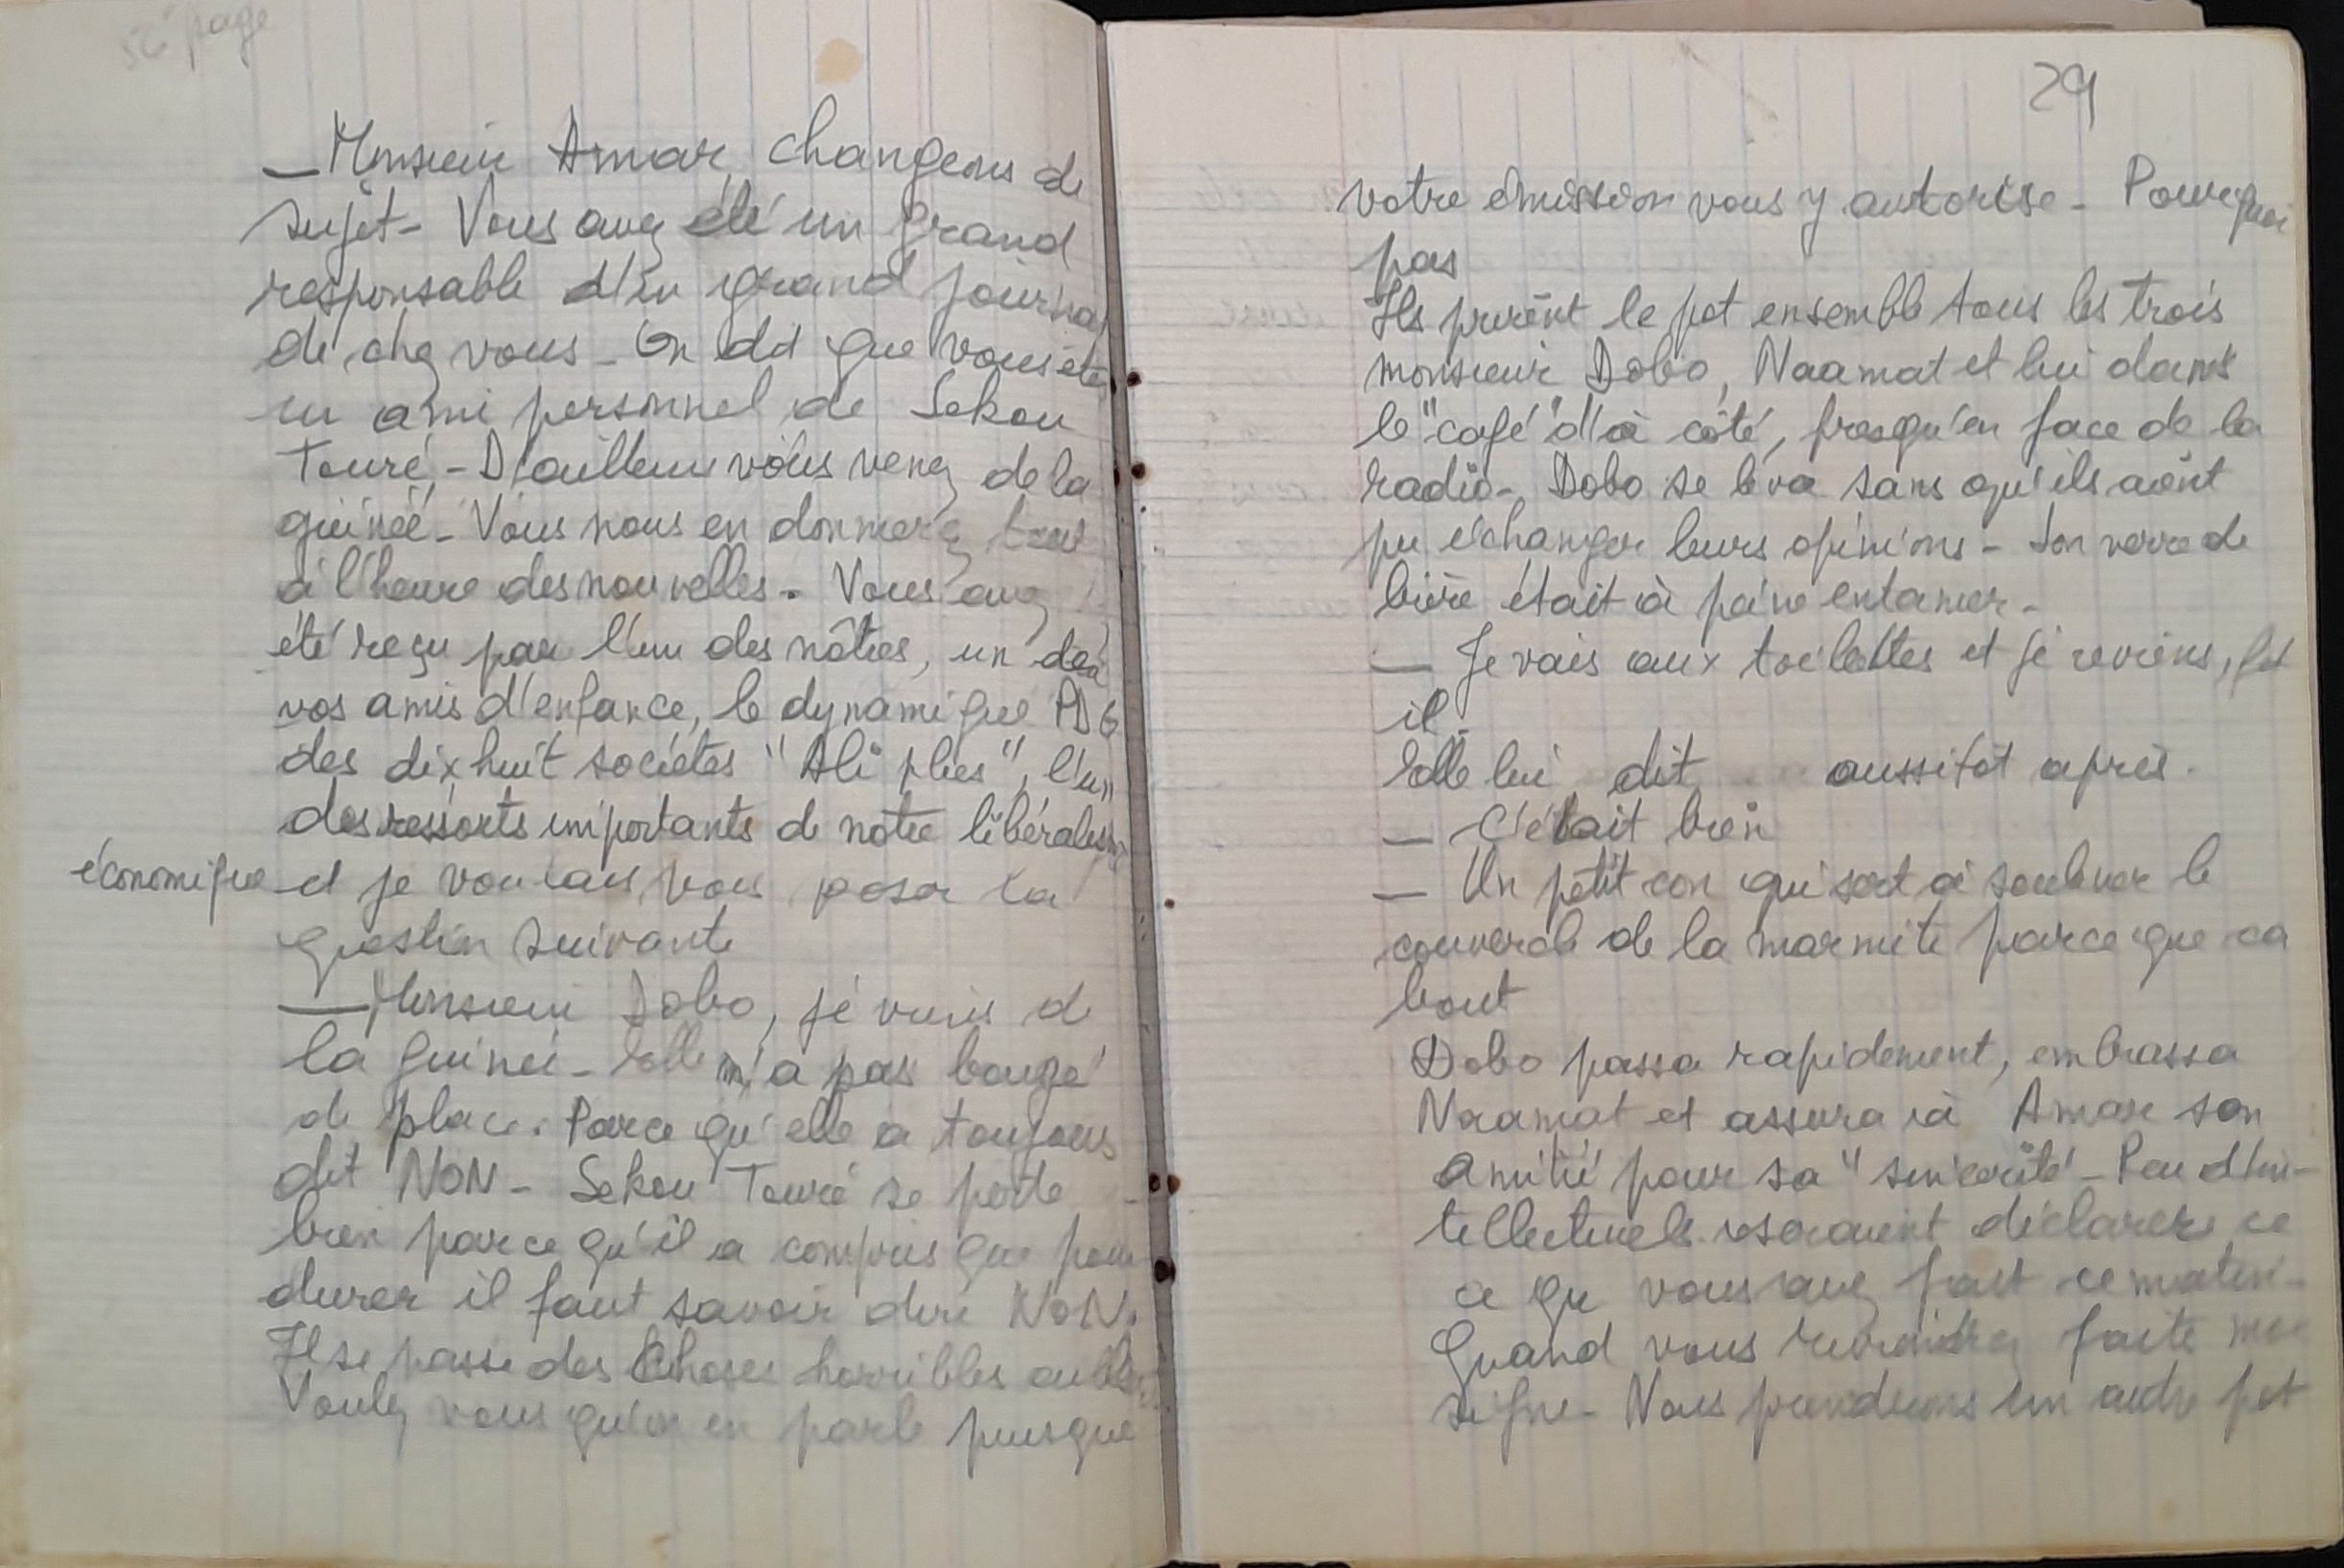 56 page
— Monsieur Amar, changeons de
sujet - Vous avez été un grand
responsable d'un grand journal
de chez vous - On dit que vous êtes
un ami personnel de Sekou
Touré, - D'ailleurs vous venez de la
guinée - Vous nous en donnerez tout
à l'heure des nouvelles. Vous avez
été reçu par l'un des nôtres, un de
vos amis d'enfance, le dynamique PDG
des dix huit sociétés "Ali plus", l'un
des ressorts importants de notre libéralisme
économique et je voulais vous poser la
question suivante
— Monsieur Dobo, je viens de
la guinée - Elle n'a pas bougé
de place. Parce qu'elle a toujours
dit NON - Sekou Touré se porte
bien parce qu'il a compris que pour
durer il faut savoir dire NON.
Il se passe des choses horribles ailleurs
Voulez vous qu'on en parle puisque
29
votre émission vous y autorise - Pourquoi
pas
Ils prirent le pot ensemble tous les trois
monsieur Dobo, Naamat et lui dans
le "café" d'à côté, presqu'en face de la
radio -, Dobo se leva sans qu'ils aient
pu échanger leurs opinions - Son verre de
bière était à peine entamer -
— Je vais aux toilettes et je reviens, fit
il.
Elle lui dit aussitôt après.
— C'était bien
— Un petit con qui sert à soulever le
couvercle de la marmite parce que ca
bout
Dobo passa rapidement, embrassa
Naamat et assura à Amar son
amitié pour sa "sincérité - Peu d'in-
tellectuels oseraient déclarer ce
ce que vous avez fait ce matin -
Quand vous reviendrez faite moi
signe - Nous prendrons un autre pot